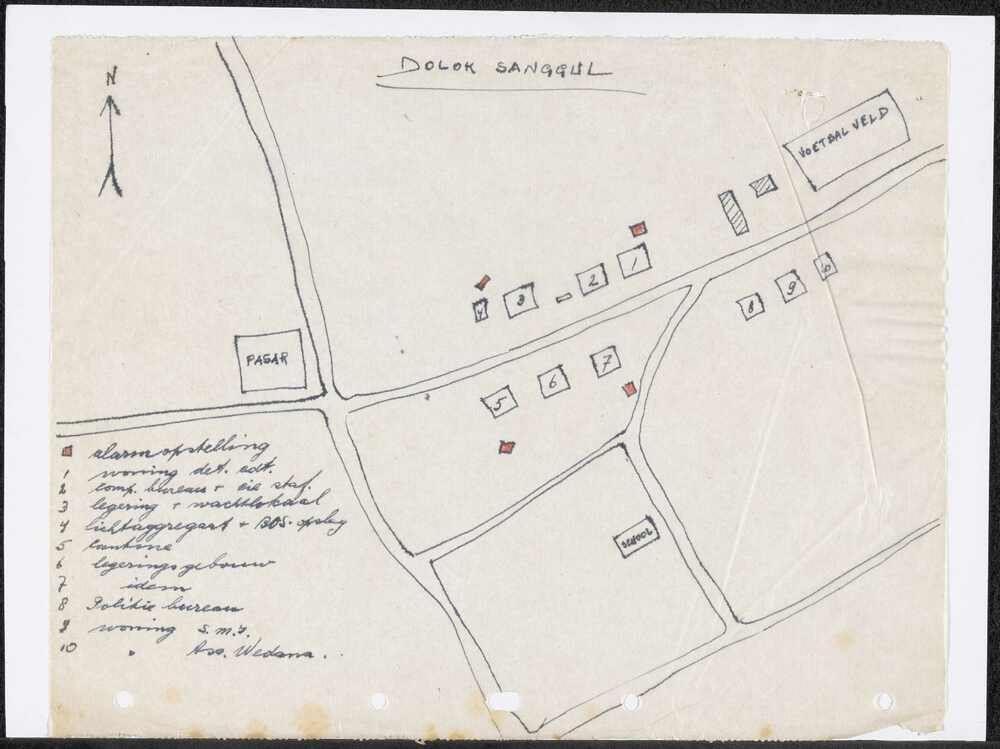 DOLOK SANGGUL
N
VOETBAL VELD
1
2
3
4
PASAR
5
6
7
8
9
10
SCHOOL
alarmopstelling
1 woning det. cdt.
2 comp. bureau + cie staf.
3 legering + wachtlokaal
4 lichtaggregaat + BOS. opslag
5 cantine
6 legeringsgebouw
7 idem
8 Politie bureau
9 woning
10 " Ass. Wedana.